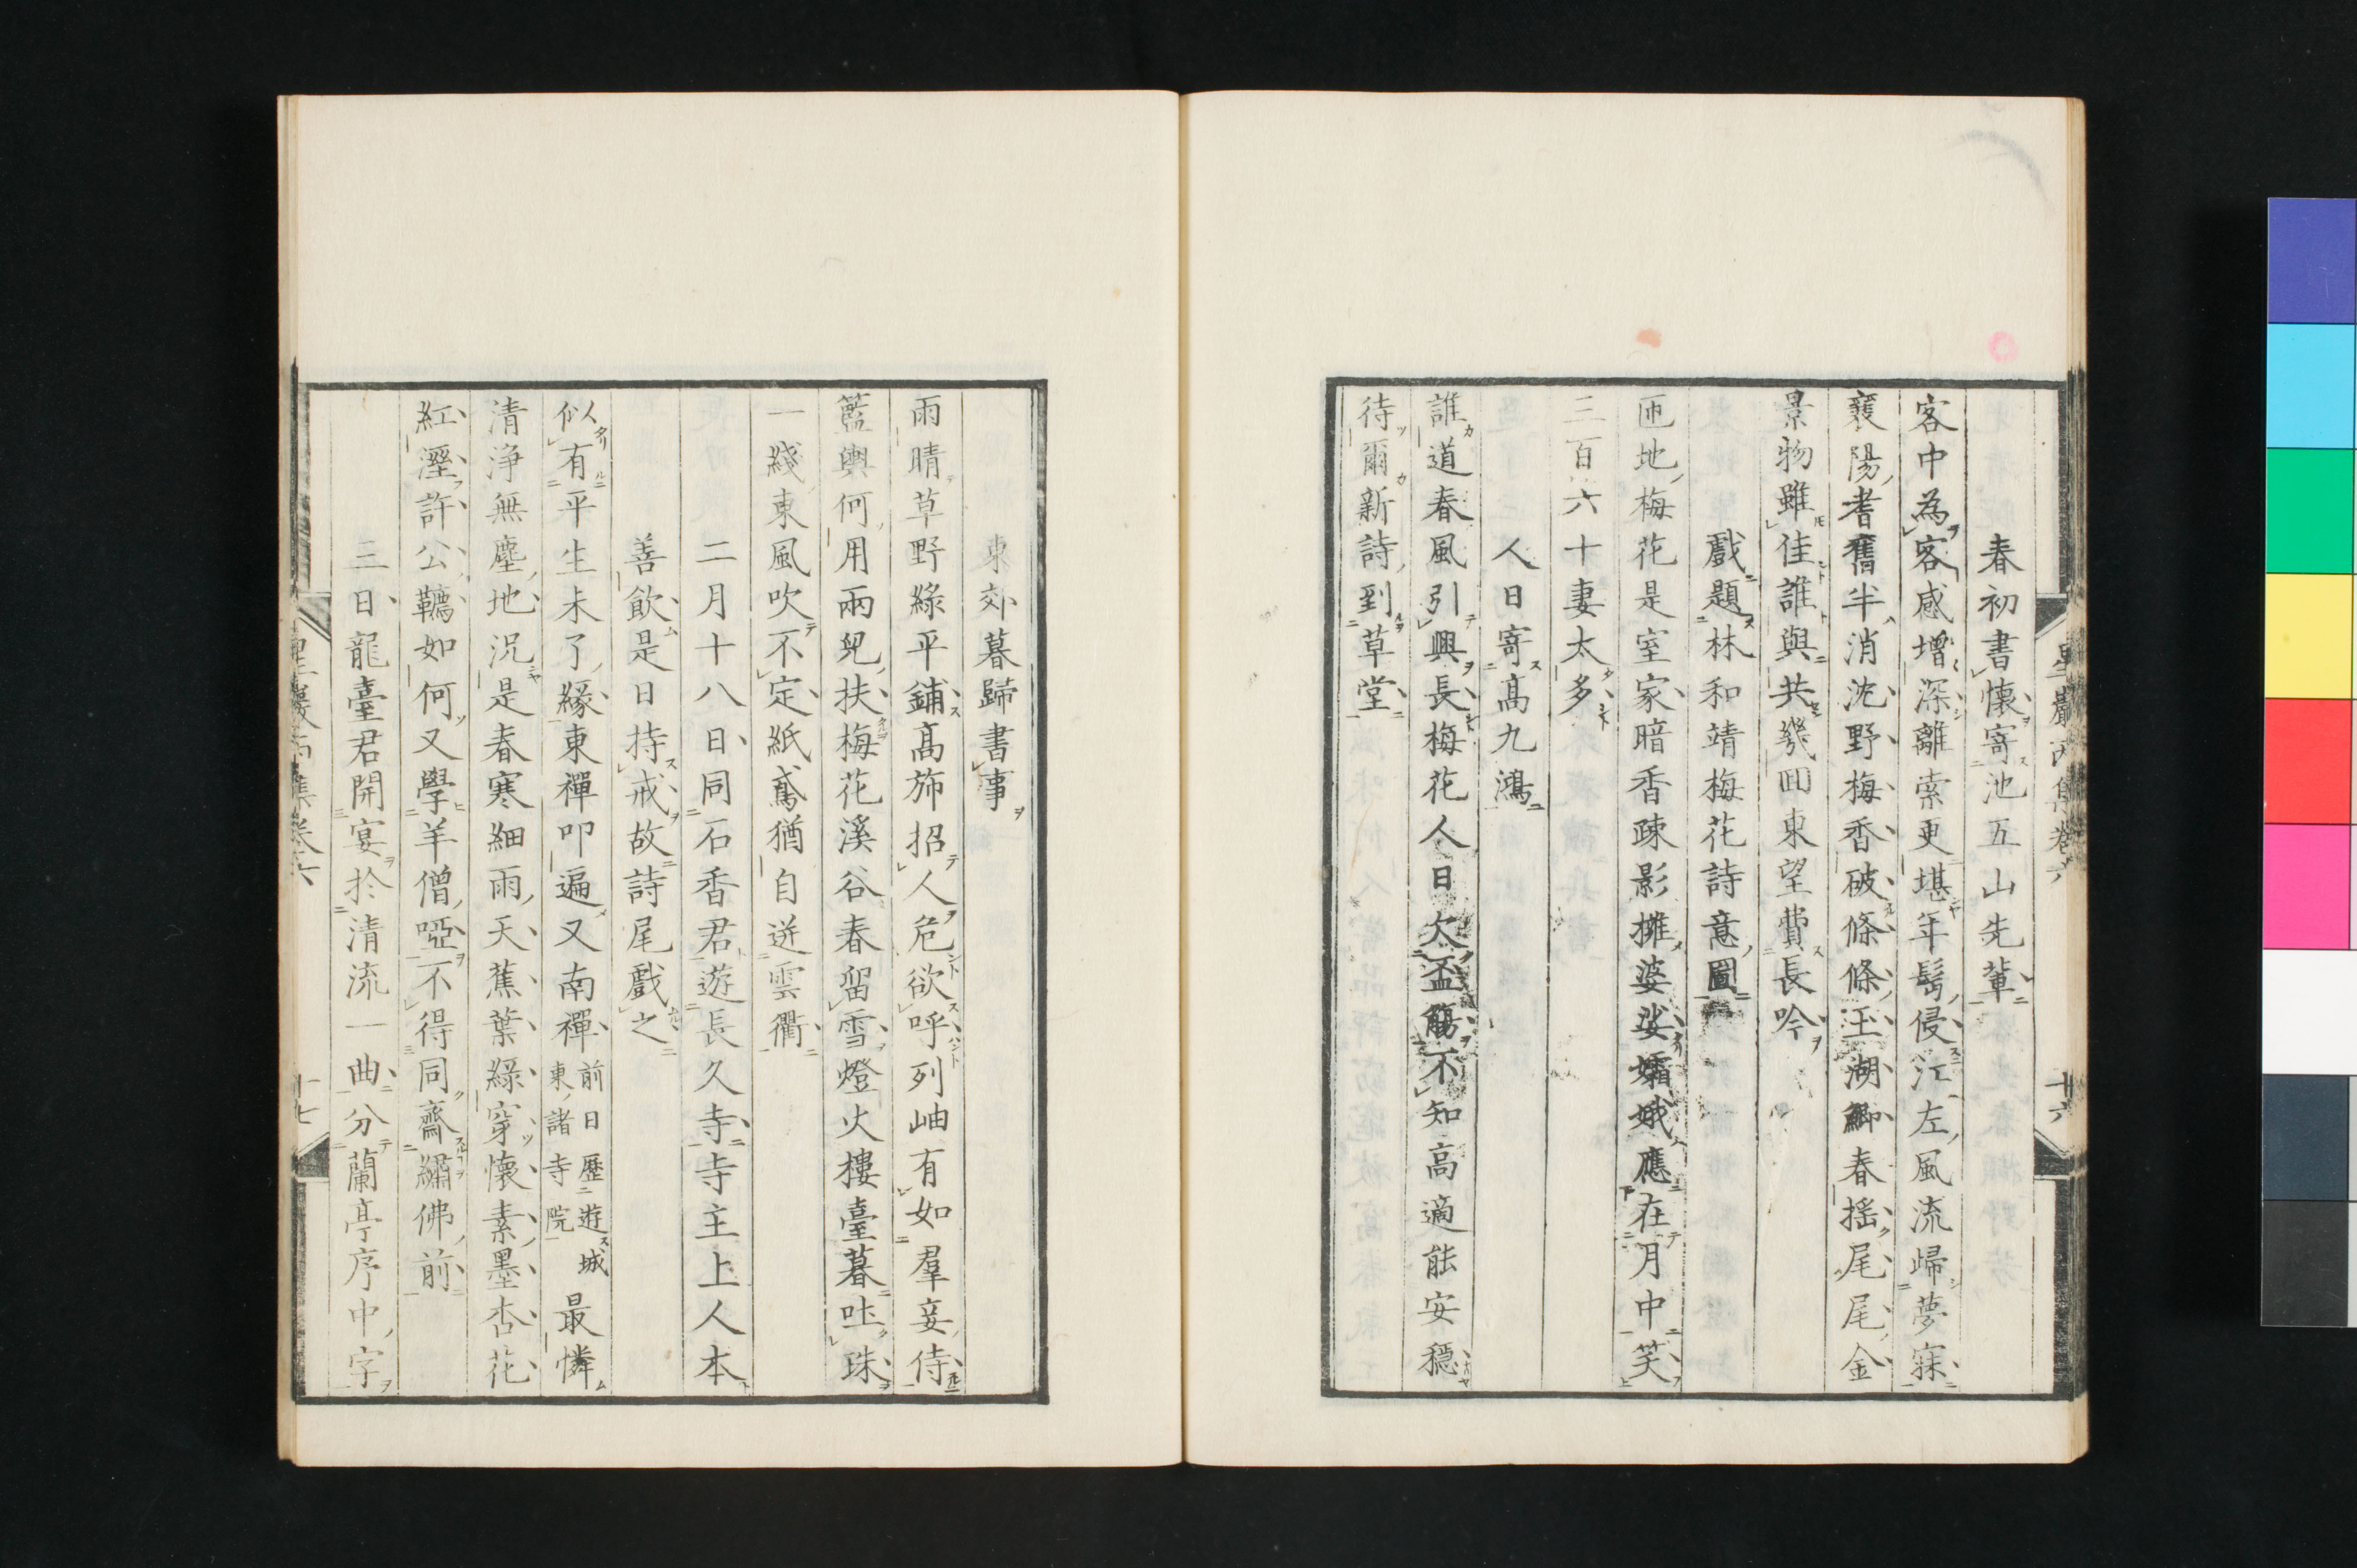 春初書懷寄池五山先輩
客中為客感增深離索更堪年髩侵江左風流歸夢寐
襄陽耆舊半消沈野梅香破條條玉湖鯽春搖尾尾金
景物雖佳誰與共幾回東望費長吟
戲題林和靖梅花詩意圖
匝地梅花是室家暗香疎影擁婆娑孀娥應在月中笑
三百六十妻太多
人日寄高九鴻
誰道春風引興長梅花人日欠盃觴不知高適能安穩
待爾新詩到草堂
星巖丙集卷六
十六
東郊暮歸書事
雨晴草野綠平鋪高斾招人危欲呼列岫有如羣妾侍
籃輿何用兩兒扶梅花溪谷春留雪燈火樓臺暮吐珠
一綫東風吹不定紙鳶猶自迸雲衢
二月十八日同石香君遊長久寺寺主上人本
善飲是日持戒故詩尾戲之
似有平生未了緣東禪叩遍又南禪前日歷遊城東諸寺院最憐
清淨無塵地況是春寒細雨天蕉葉綠穿懷素墨杏花
紅溼許公韉如何又學羊僧啞不得同齋繡佛前
三日龍臺君開宴於清流一曲分蘭亭序中字
星巖丙集卷六
十七